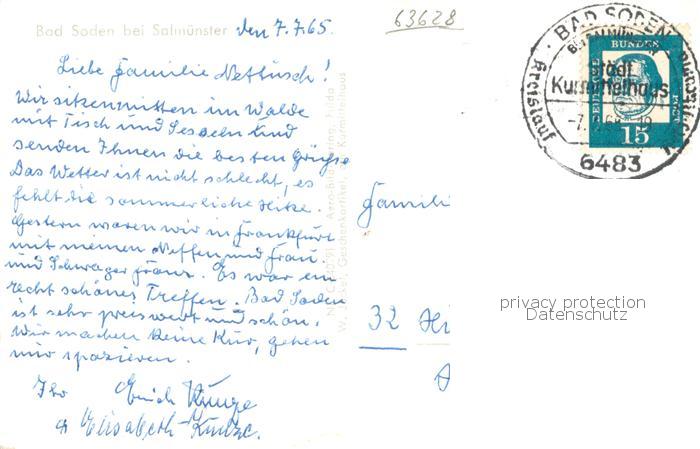 Bad Soden bei Salmünster den 7.7.65.
63628
Liebe Familie Nettusch!
Wir sitzen mitten im Walde
mit Tisch und Sesseln und
senden Ihnen die besten Grüße
Das Wetter ist nicht schlecht, es
fehlt die sommerliche Hitze.
Gestern waren wir in Frankfurt
mit meinen Neffen und Frau.
und Schwager Franz. Es war ein
recht schönes Treffen. Bad Soden
ist sehr preiswert und schön.
Wir machen keine Kur, gehen
nur spazieren.
Ihr Erich Kunze
Elisabeth Kunze.
Famili
32 Hi
BAD SODEN
Städt
Kurmittelhaus
6483
BUNDES
15
privacy protection
Datenschutz